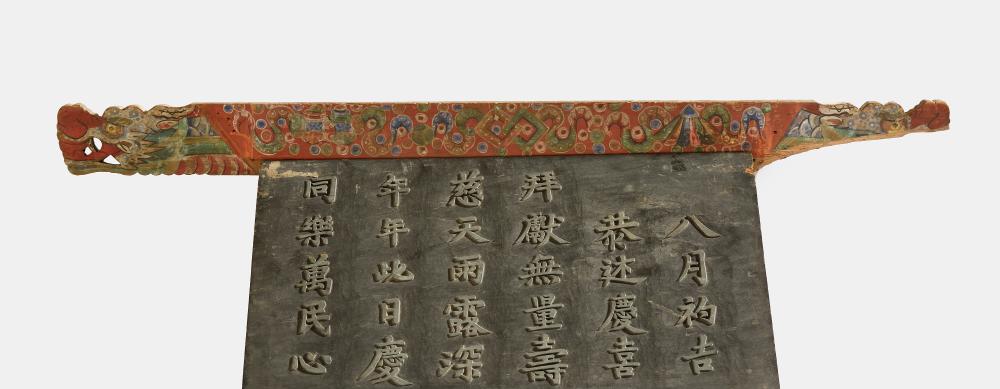 八月初吉
恭述慶喜
拜獻無量壽
慈天雨露深
年年此日慶
同樂萬民心